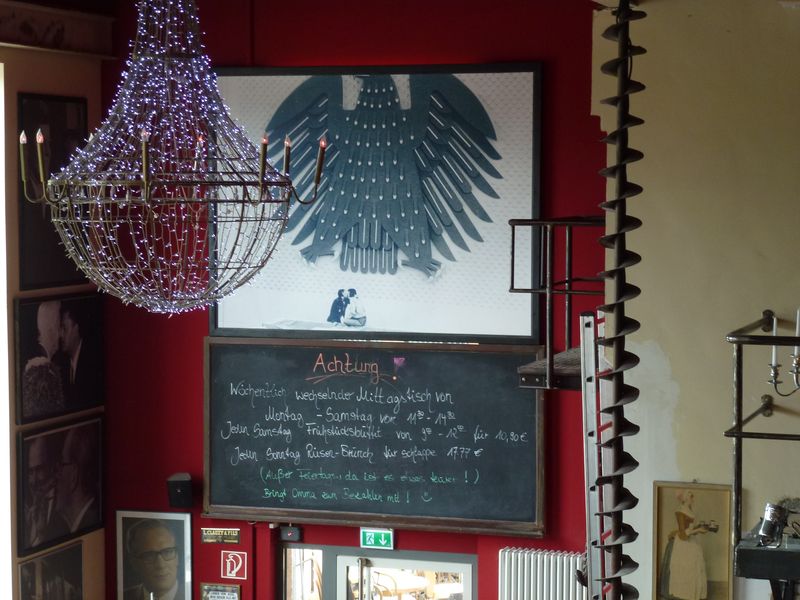 Achtung!
Wöchentlich wechselnder Mittagstisch von
Montag - Samstag von 11³⁰ - 14³⁰
Jeden Samstag Frühstücksbüffet von 9⁰⁰ - 12⁰⁰ für 10,90 €
Jeden Sonntag Riesen-Brunch für schlappe 17.77 €
(Außer Feiertags, da ist es etwas teurer!)
Bringt Omma zum Bezahlen mit!